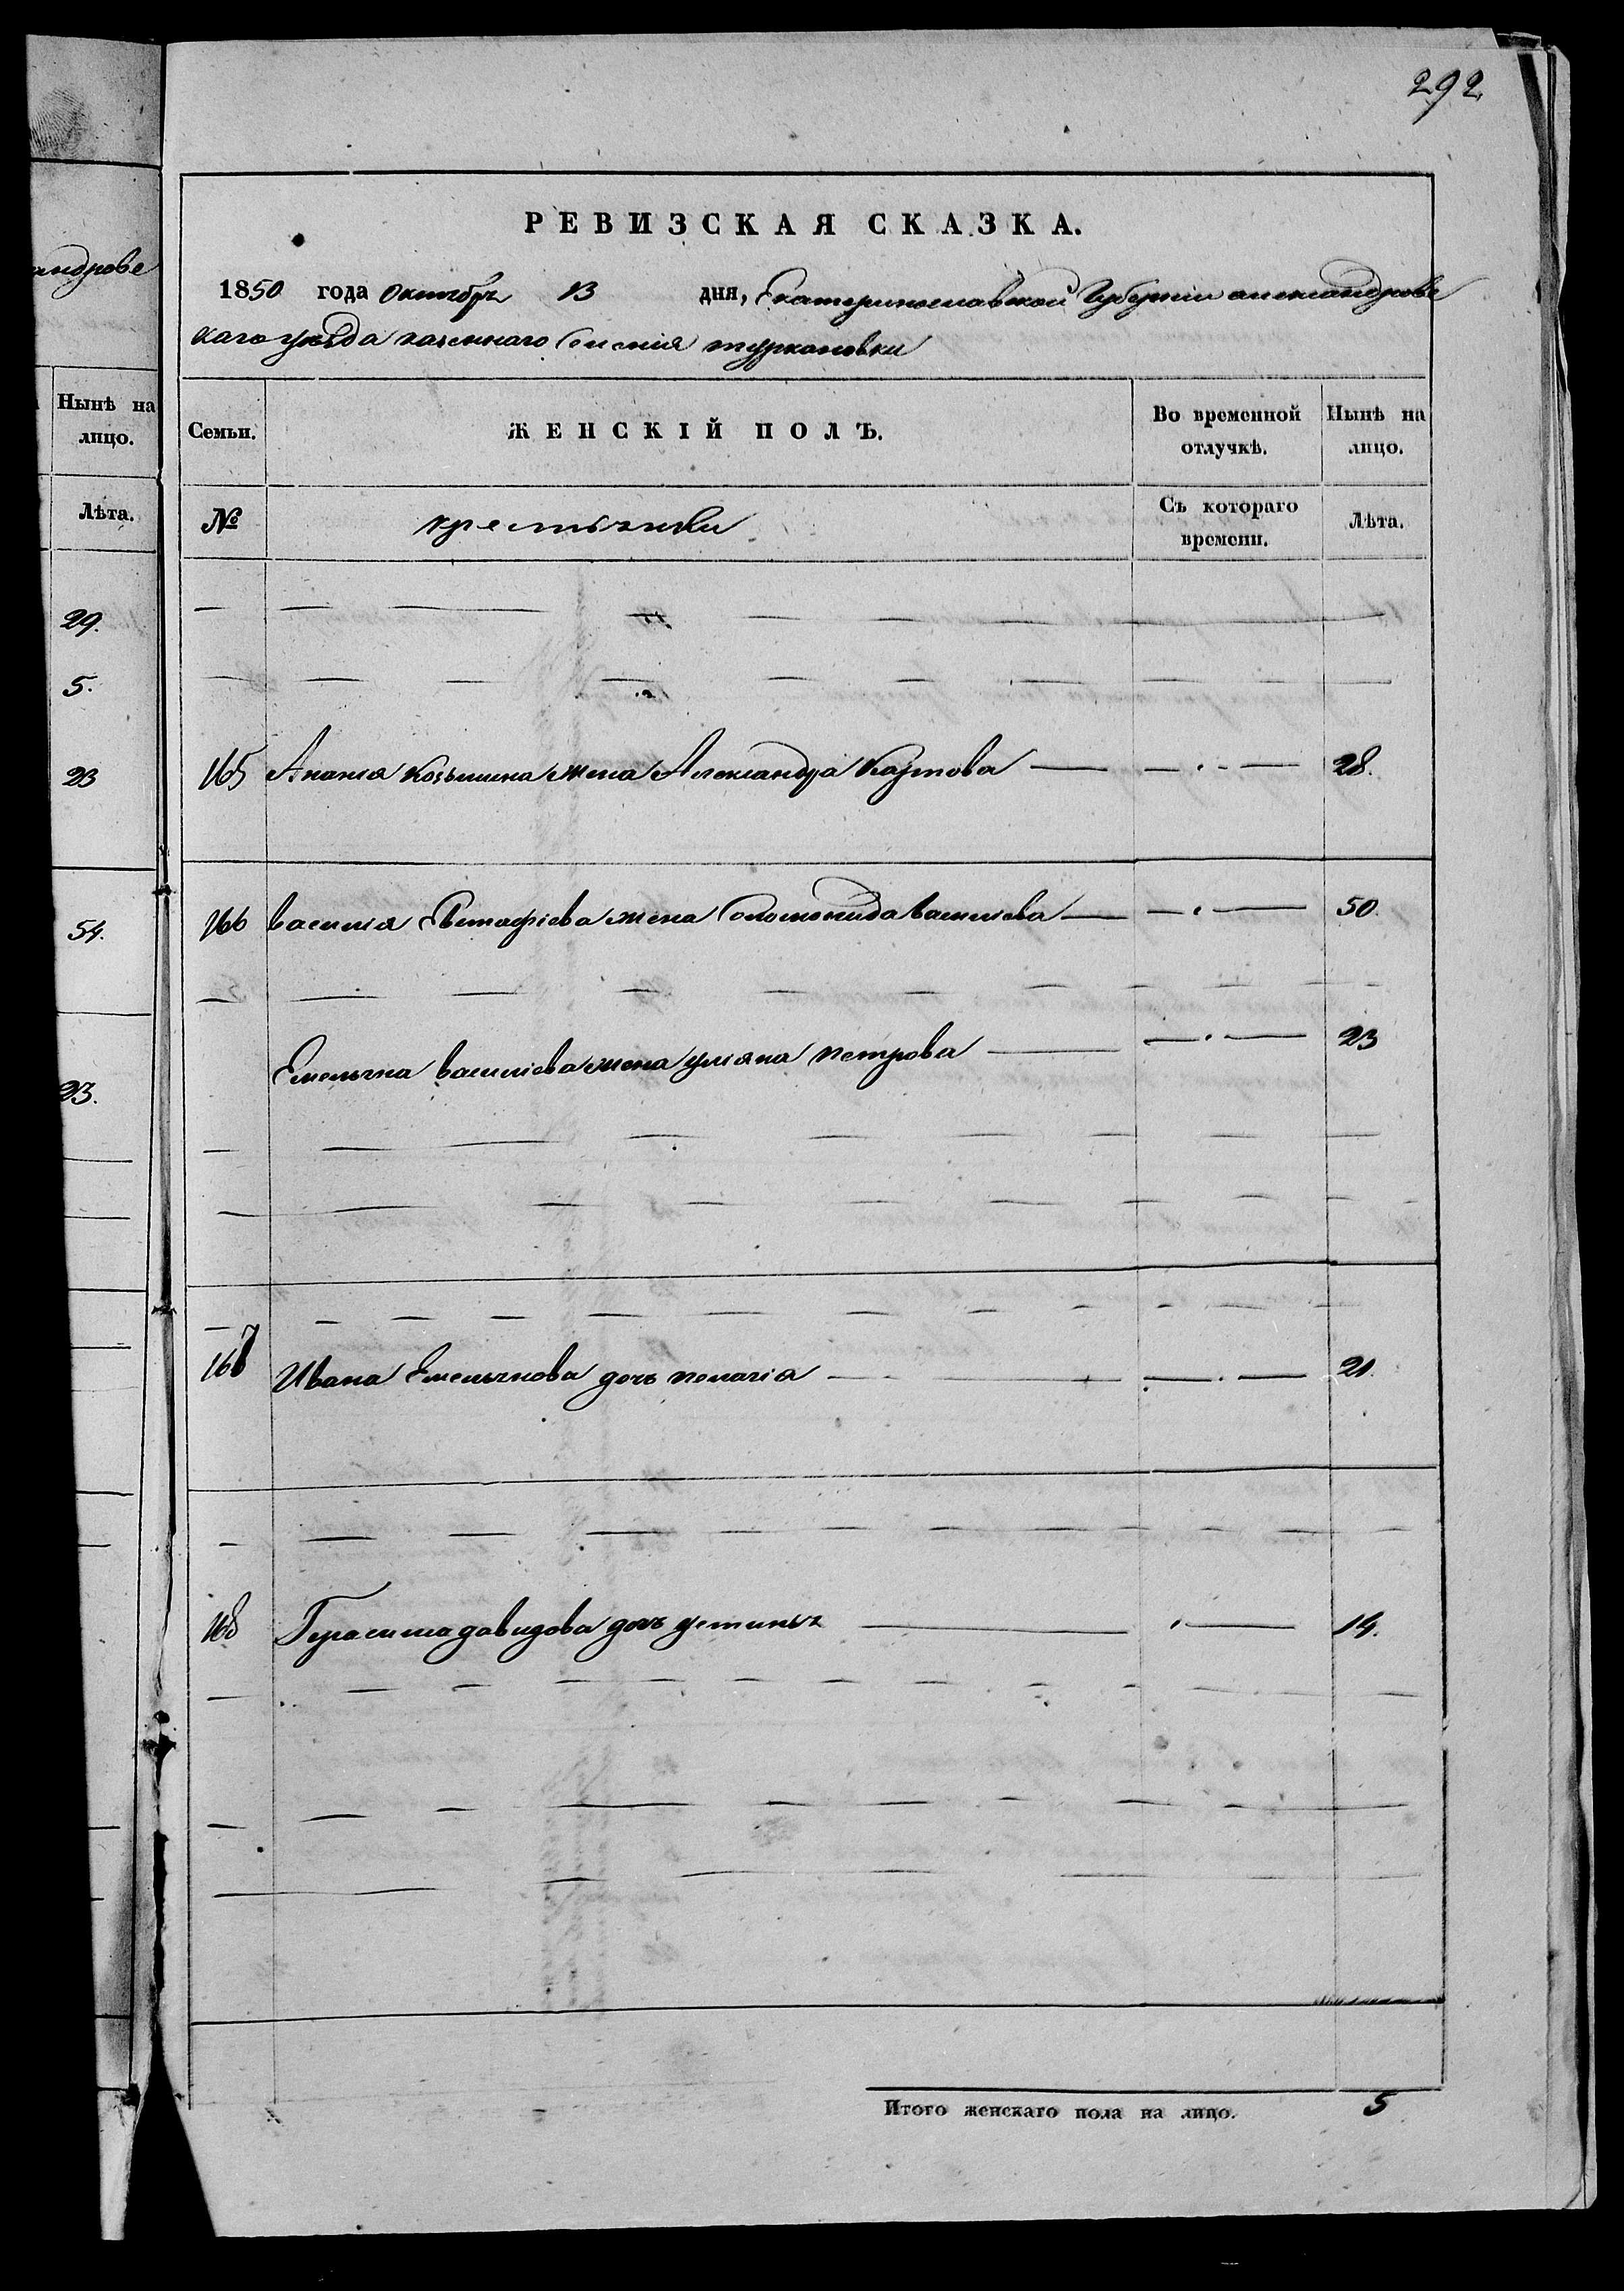 292
РЕВИЗСКАЯ СКАЗКА.
андрове
1850 года Октября 13 дня, Екатеринославской Губерніи александровс
каго уезда казеннаго Селенія туркановки
Нынѣ на лицо.
Семьи. ЖЕНСКІЙ ПОЛЪ. Во временной отлучкѣ. Нынѣ на лицо.
Лѣта.
№ крестьянки Съ котораго времени. Лѣта.
29.
5.
23
165 Анания Козьмина жена Александра Карпова 28.
54.
166 василия Евстафіева жена Соломонида василіева 50.
Емельяна василіева жена улияна петрова 23
23.
167 Ивана Емельянова дочь пелагія 21.
168 Герасима давидова дочь устинья 14.
Итого женскаго пола на лицо. 5